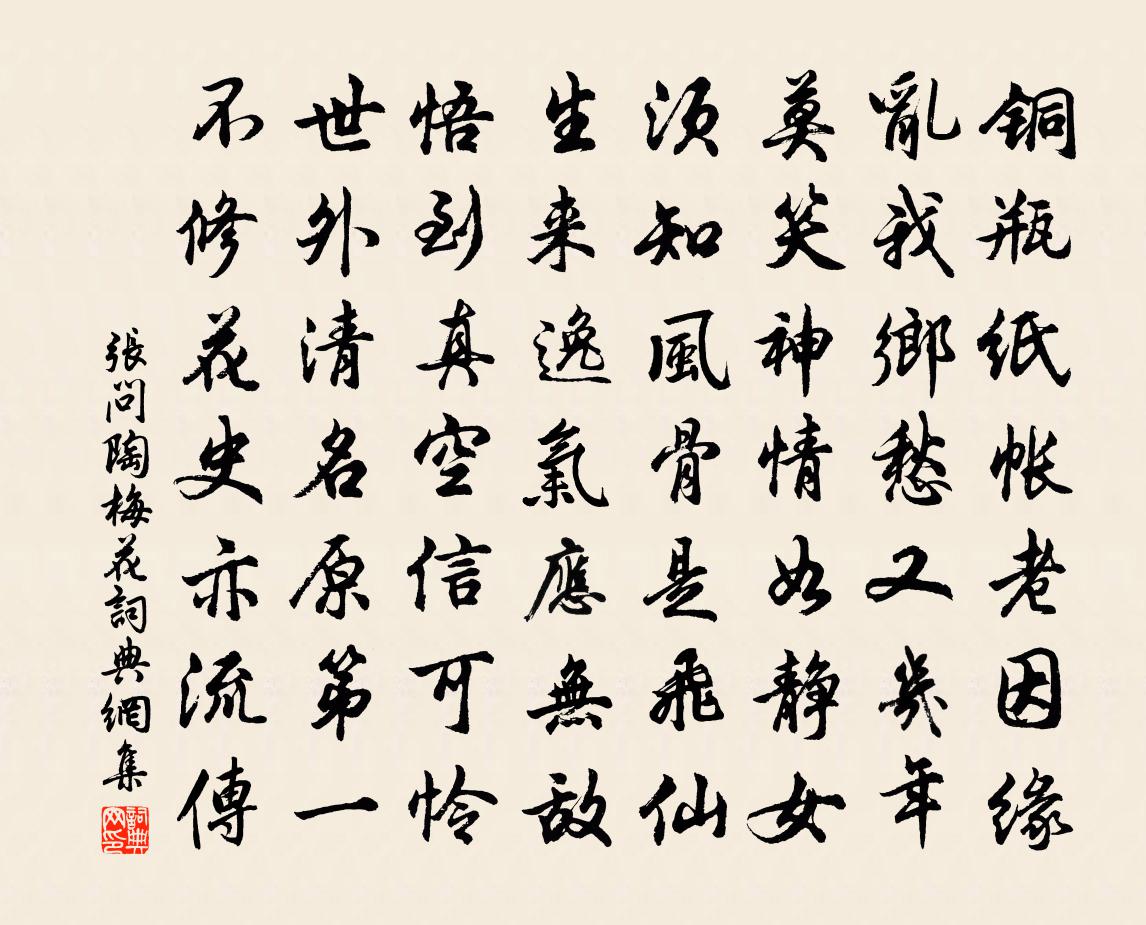 銅瓶紙帐老因緣
亂我鄉愁又幾年
莫笑神情如静女
須知風骨是飛仙
生来逸氣應無敵
悟到真空信可憐
世外清名原第一
不修花史亦流傳
張問陶梅花詞典網集
詞典网印